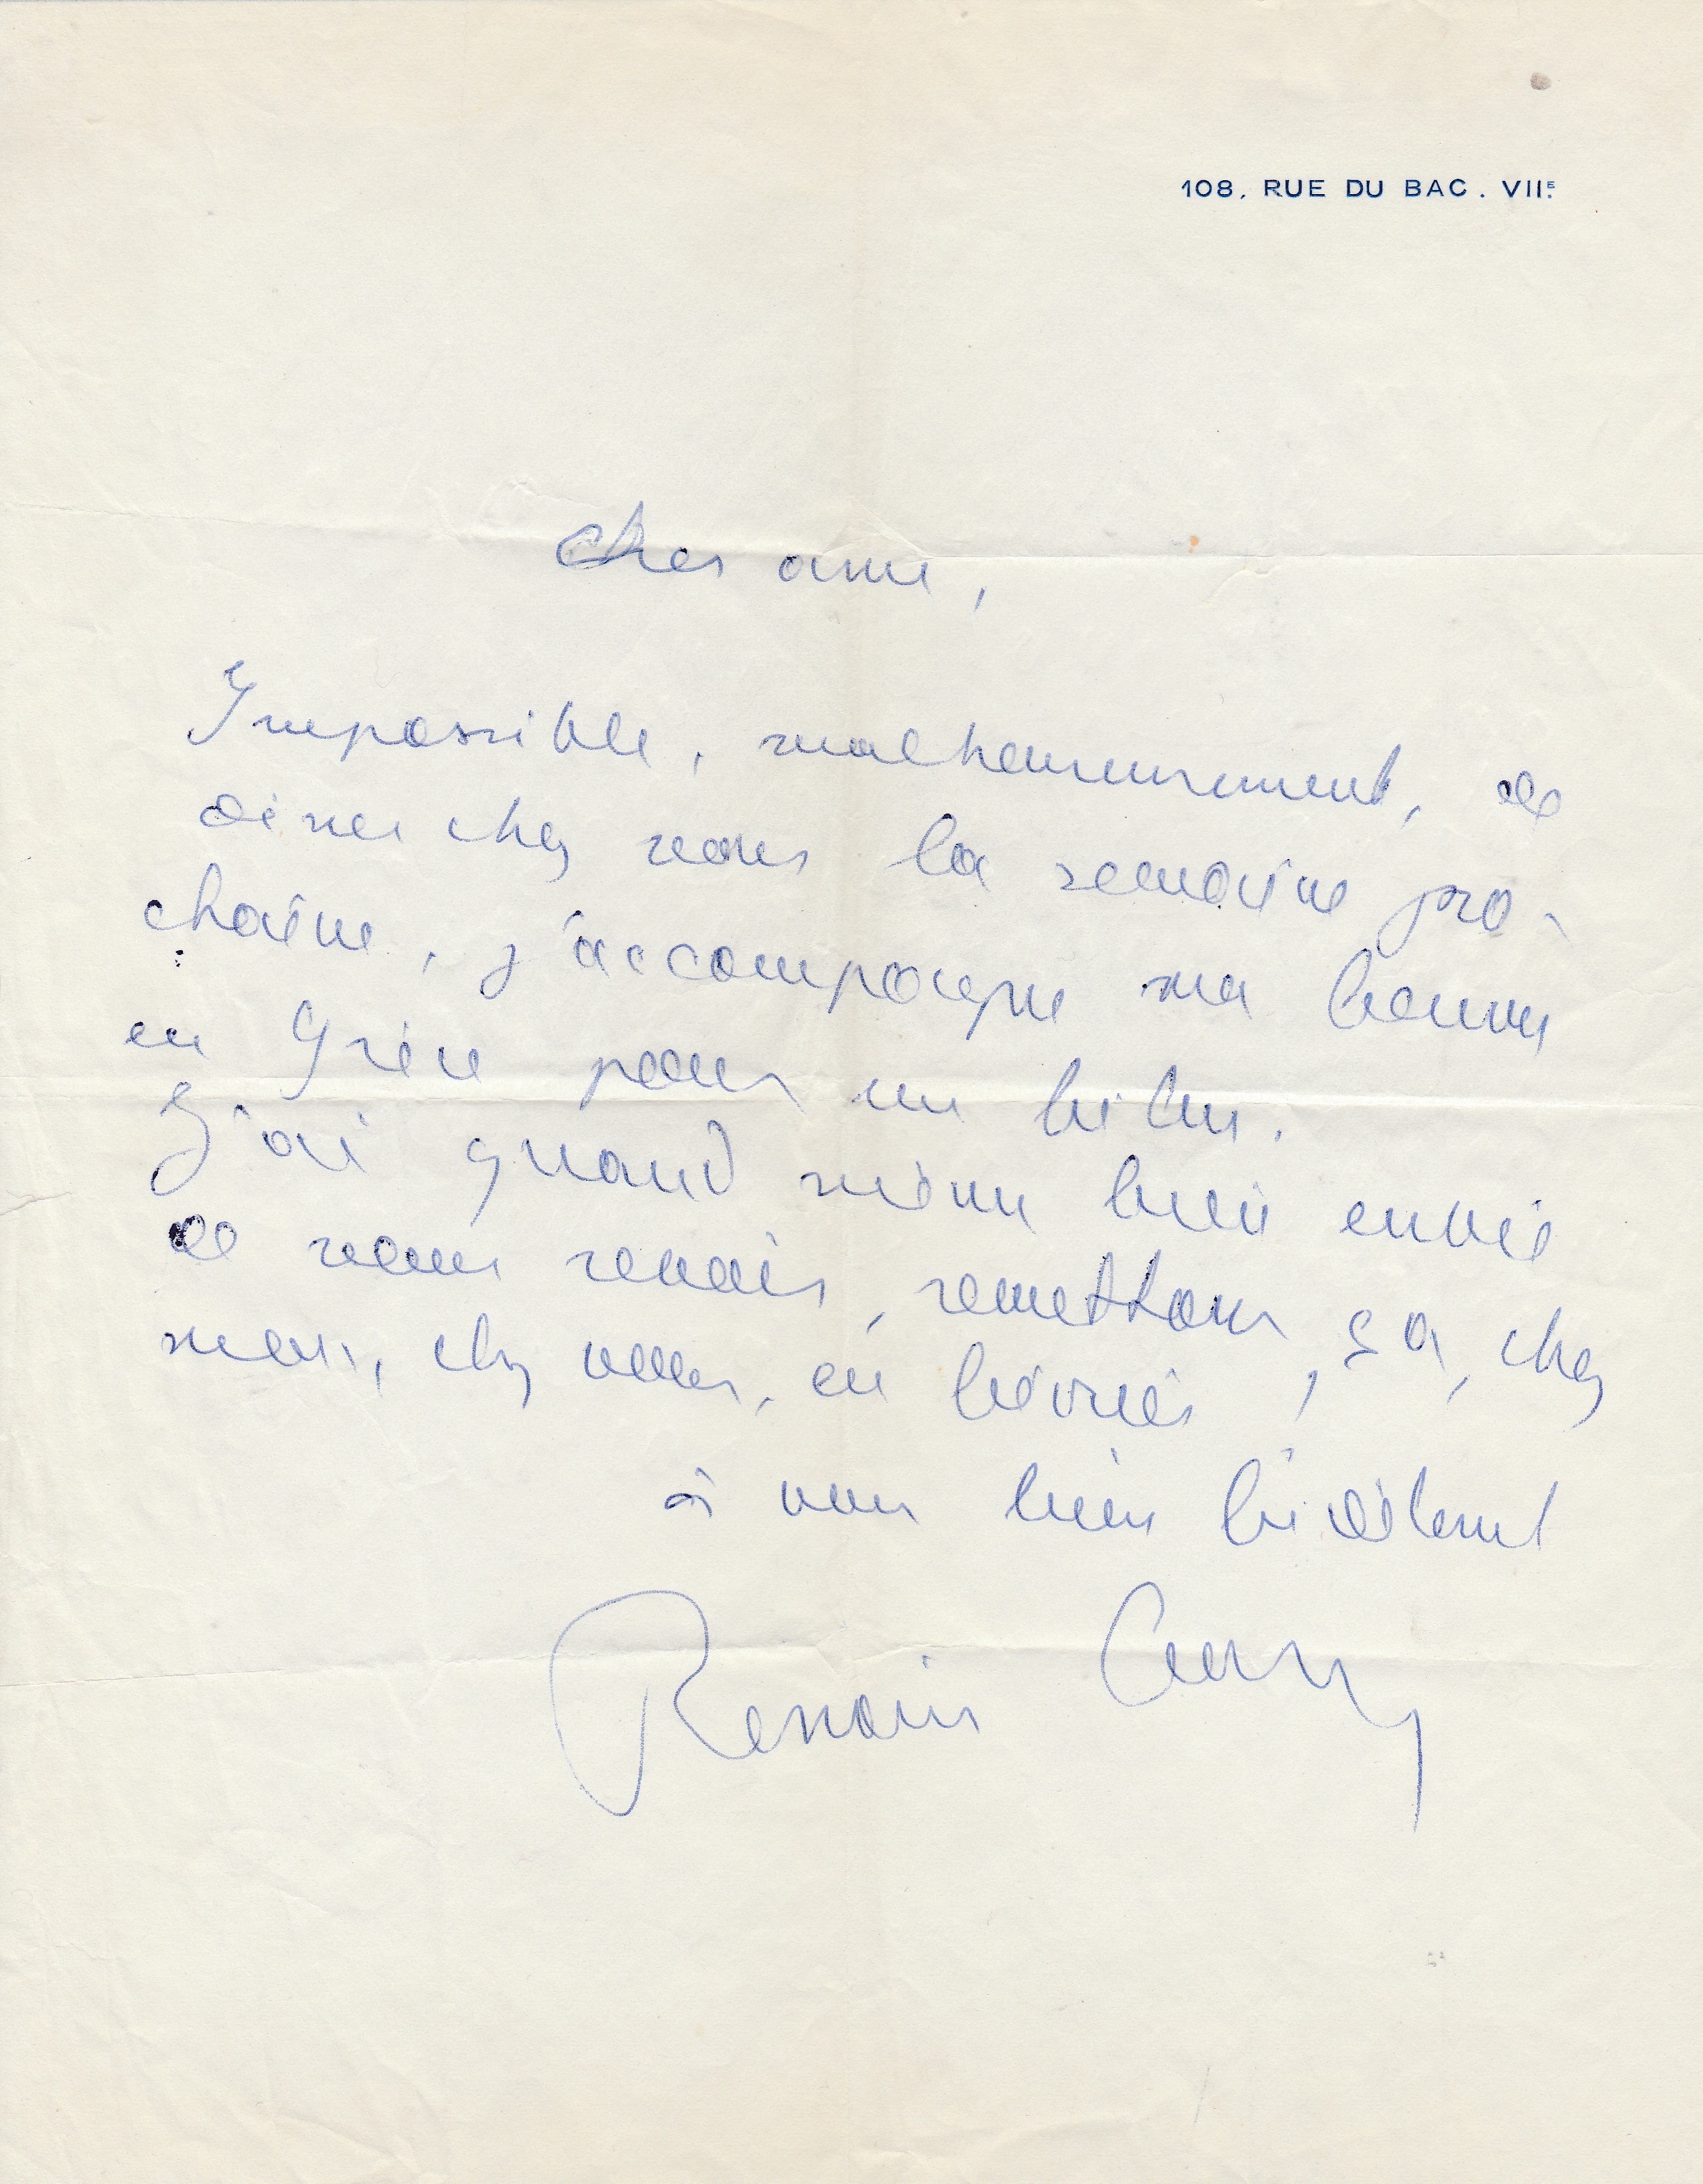 108, RUE DU BAC. VIIE.
Cher ami,
Impossible, malheureusement, de
diner chez vous la semaine pro-
chaine, j'accompagne ma femme
en Grèce pour un film.
J'ai quand même bien envie
de vous revoir, remettons, ça, chez
moi, chez vous, en février,
à vous bien fidèlement
Romain Gary